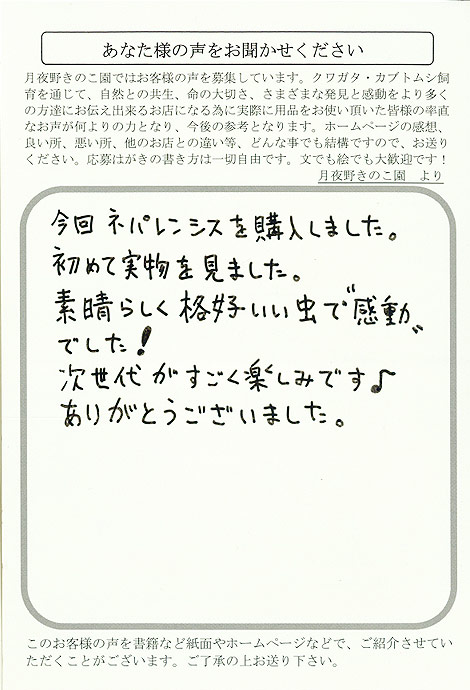 あなた様の声をお聞かせください
月夜野きのこ園ではお客様の声を募集しています。クワガタ・カブトムシ飼
育を通じて、自然との共生、命の大切さ、さまざまな発見と感動をより多く
の方達にお伝え出来るお店になる為に実際に用品をお使い頂いた皆様の率直
なお声が何よりの力となり、今後の参考となります。ホームページの感想、
良い所、悪い所、他のお店との違い等、どんな事でも結構ですので、お送り
ください。応募はがきの書き方は一切自由です。文でも絵でも大歓迎です！
月夜野きのこ園　より
今回 ネパレンシスを購入しました。
初めて実物を見ました。
素晴らしく格好いい虫で感動
でした！
次世代がすごく楽しみです♪
ありがとうございました。
このお客様の声を書籍など紙面やホームページなどで、ご紹介させてい
ただくことがございます。ご了承の上お送り下さい。